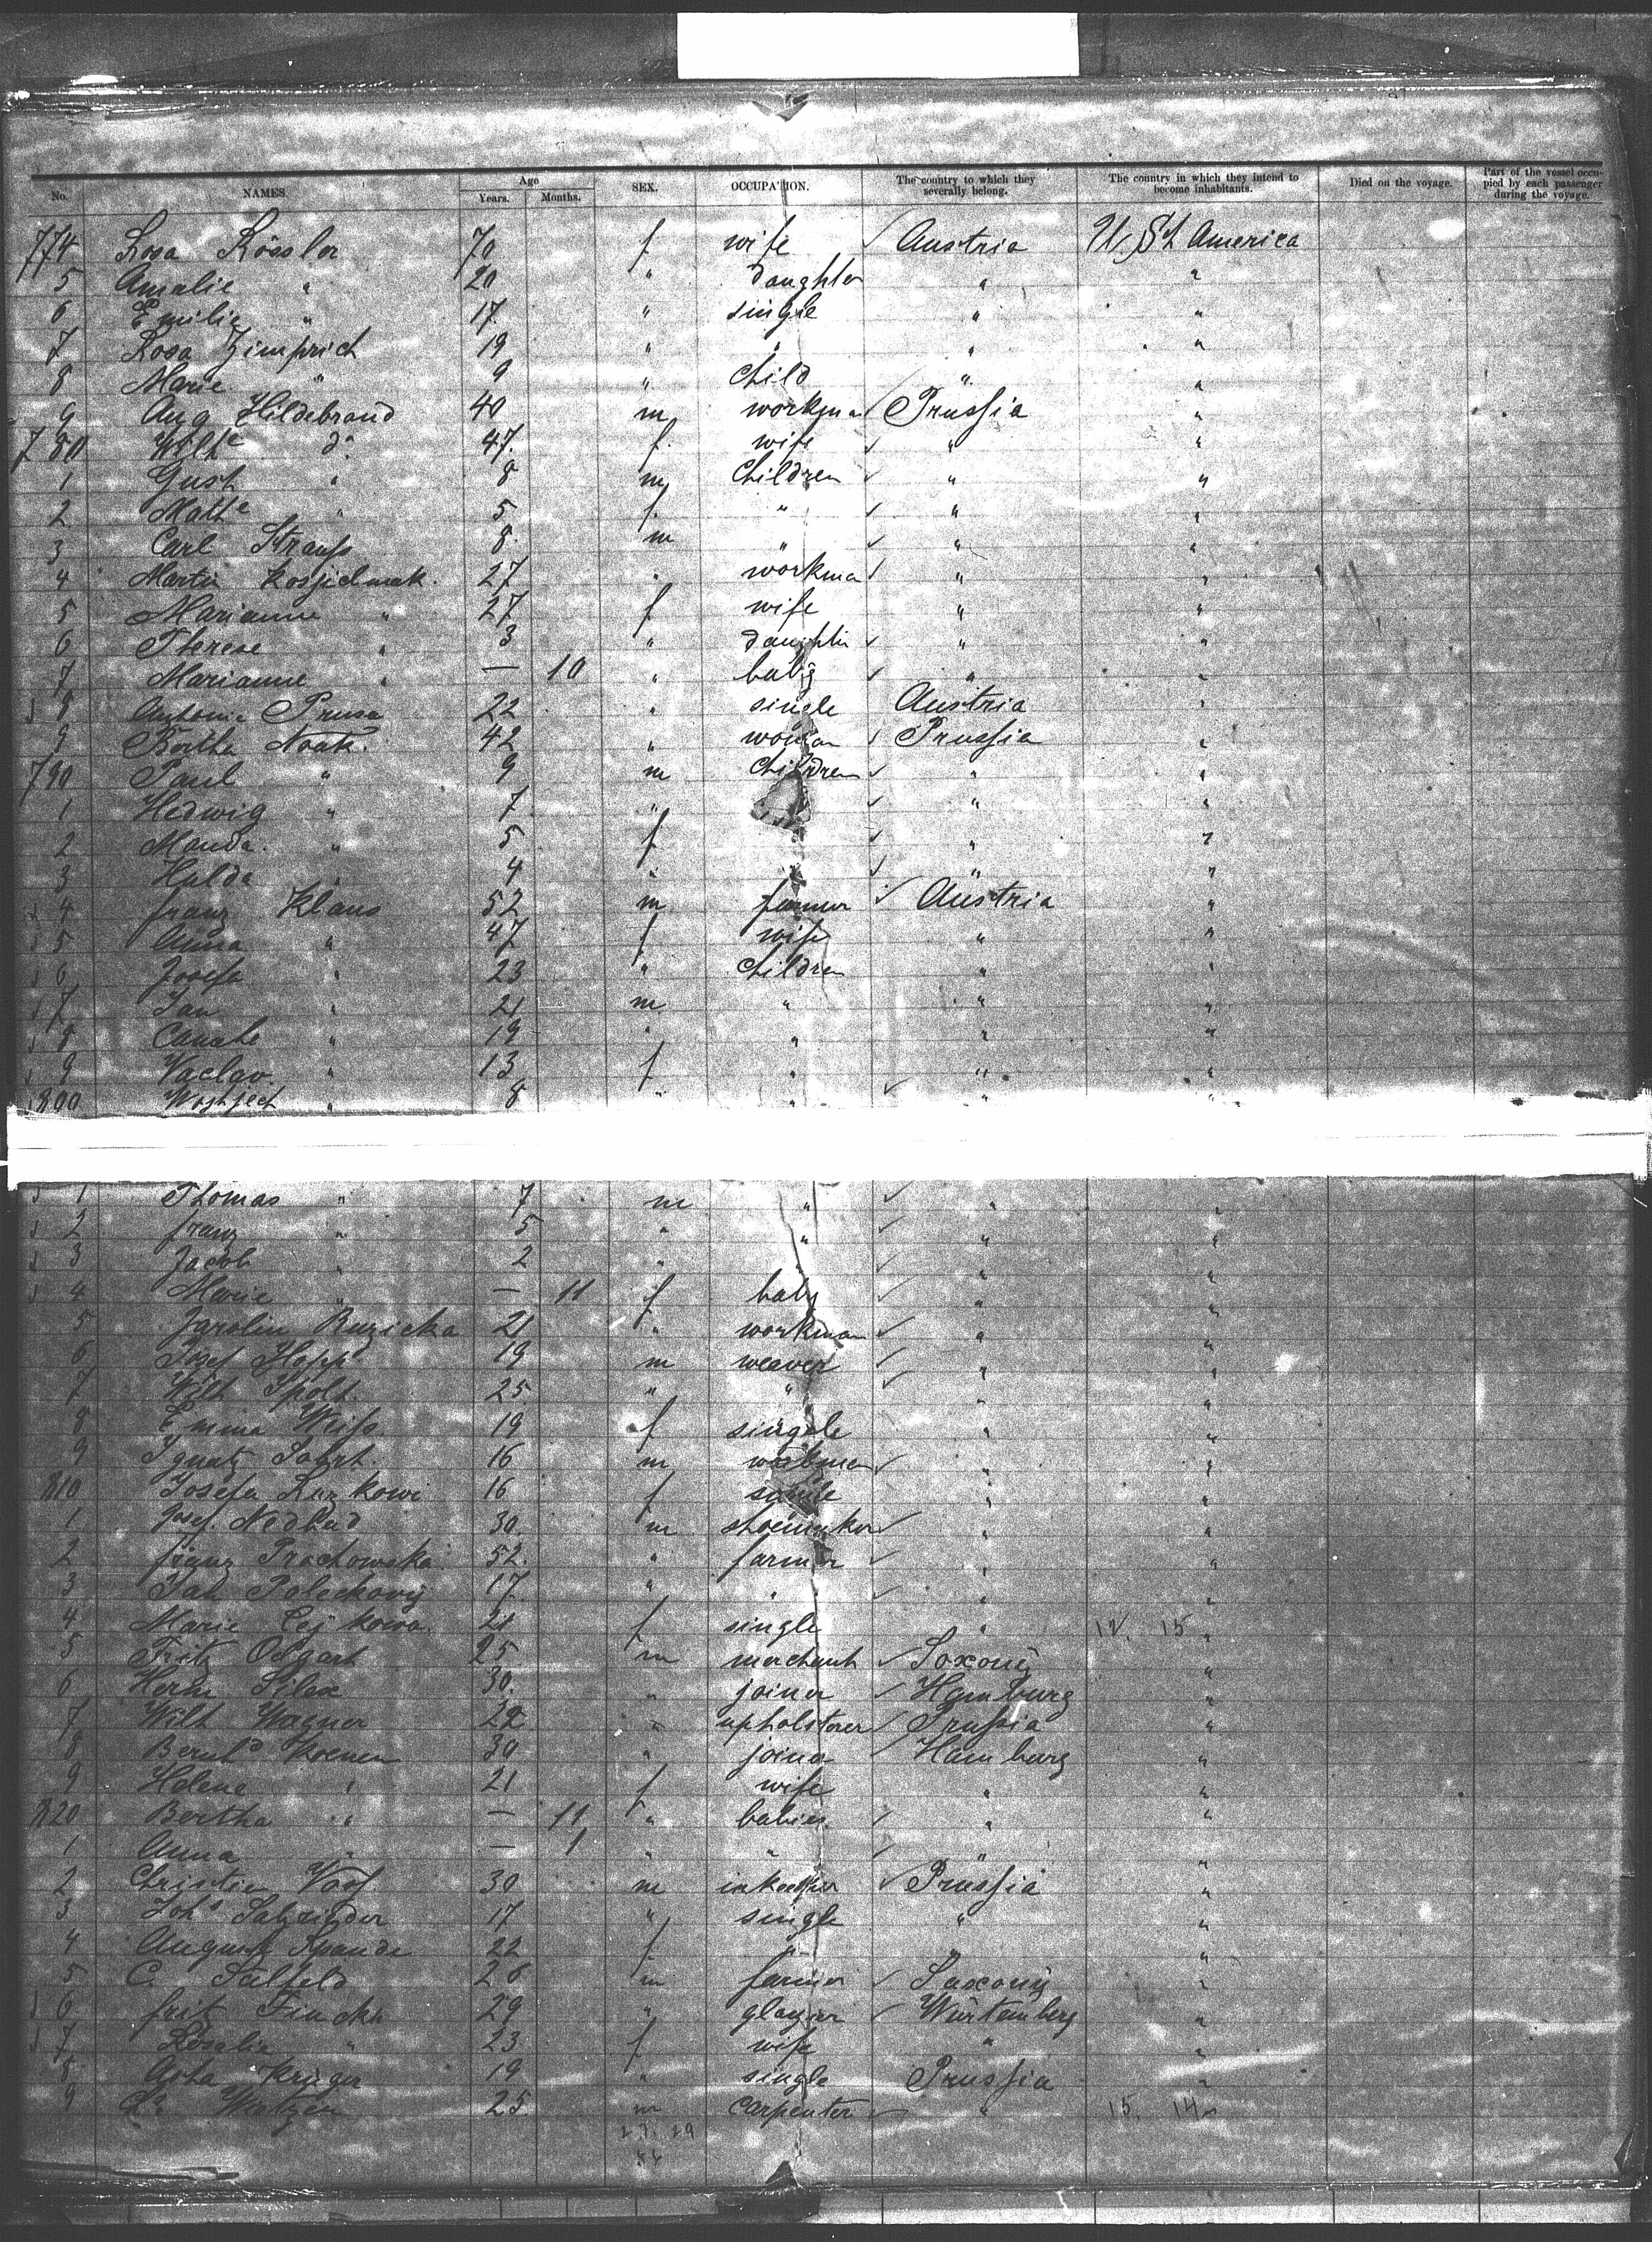 No. NAMES. Age Years. Months. SEX. OCCUPATION. The country to which they severally belong. The country in which they intend to become inhabitants. Died on the voyage. Part of the vessel occupied by each passenger during the voyage.
774 Rosa Rössler 70 f wife Austria U. St America
5 Amalie " 20 " daughter " "
6 Emilie " 17 " single " "
7 Rosa Zimprich 19 " " " "
8 Marie " 9 " Child " "
9 Aug Hildebrand 40 m workman Prussia "
780 Wilhe do 47 f wife " "
1 Gust " 8 m Children " "
2 Mathe " 5 f " " "
3 Carl Strauss 8 m " " "
4 Martin 27 " workman " "
5 Marianne " 27 f wife " "
6 Therese " 3 " daughter " "
7 Marianne " — 10 " baby " "
8 Antonie Prusa 22 " single Austria "
9 Bertha Noak 42 " woman Prussia "
790 Paul " 9 m Children " "
1 Hedwig " 7 " " "
2 Manda " 5 f " "
3 Hulda " 4 " " "
4 Franz Klaus 52 m farmer Austria "
5 Anna " 47 f wife " "
6 Josefa " 23 " Children " "
7 Jan " 21 m " " "
8 " 19 " " " "
9 Waclav " 13 f " " "
800 " 8 " " " "
1 Thomas " 7 m " " "
2 Franz " 5 " " " "
3 Jacob " 2 " " " "
4 Marie " — 11 f baby " "
5 Jarolin Ruzicka 21 " workman " "
6 Josef Hopp 19 m weaver " "
7 Wilh 25 " " " "
8 Emma Weiss 19 f single " "
9 Ignatz 16 m workman " "
810 Josefa 16 f single " "
1 Josef 30 m shoemaker " "
2 Franz Prachowska 52 " farmer " "
3 Jan 17 " " " "
4 Marie 21 f single " 12. 15 "
5 Fritz Odgart 25 m merchant Saxony "
6 Herm Silex 30 " joiner Hamburg "
7 Wilh Wagner 22 " upholsterer Prussia "
8 Bernhd Koenen 30 " joiner Hamburg "
9 Helene " 21 f wife " "
820 Bertha " — 11 " babies " "
1 Anna " — 1 " " " "
2 Christian 30 m inkeeper Prussia "
3 Johs 17 " single " "
4 August 22 f " " "
5 C. Salfeld 28 m farmer Saxony "
6 Fritz 29 " glazier Würtemberg "
7 Rosalie " 23 f wife " "
8 Krüger 19 " single Prussia "
9 25 m carpenter " 15. 14 "